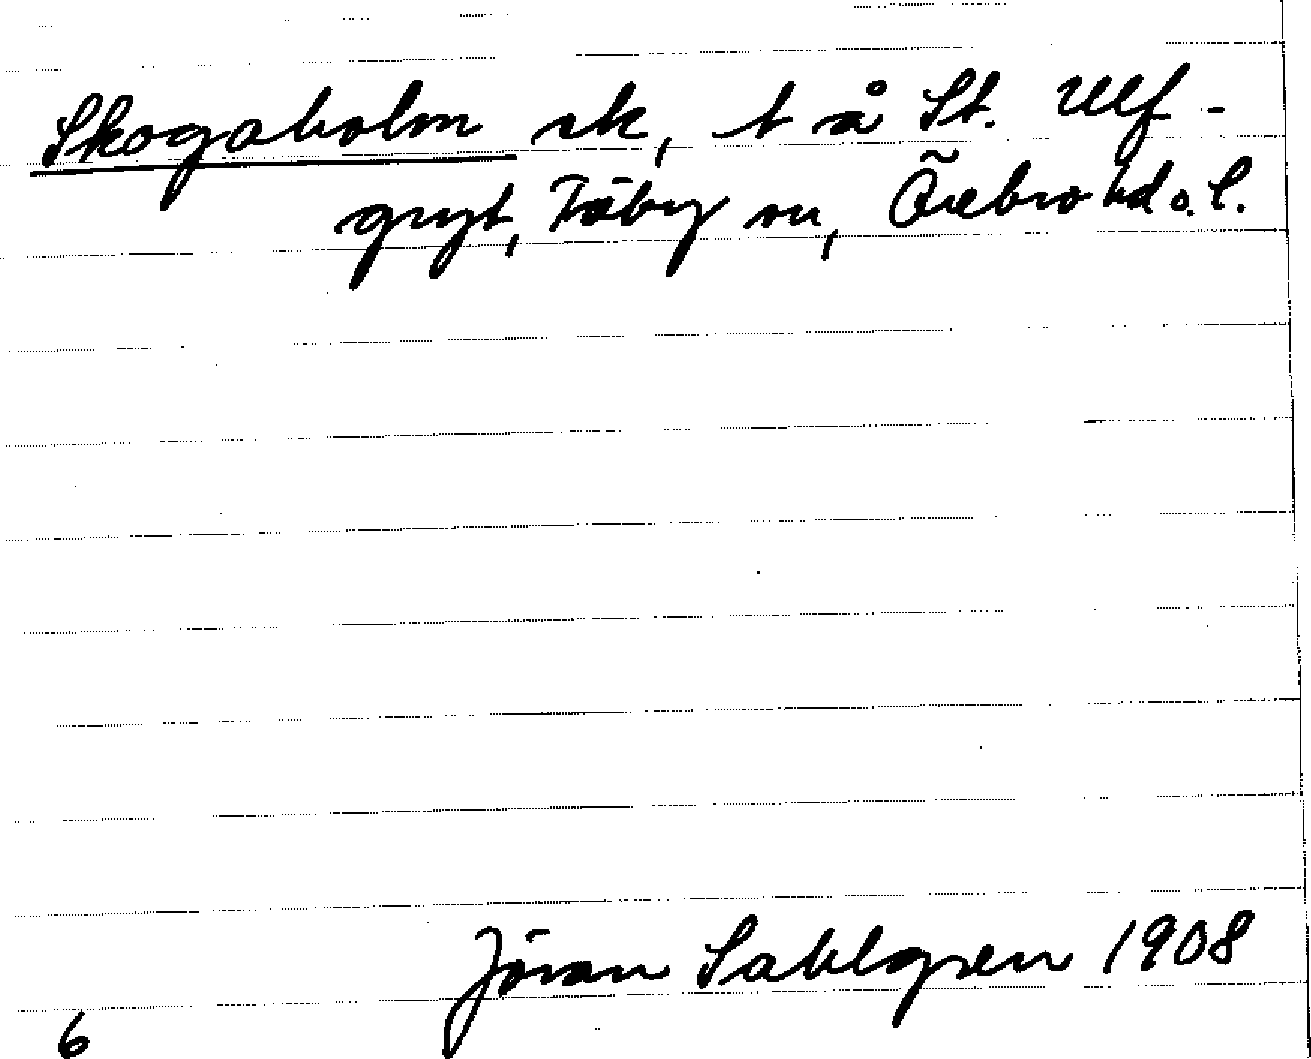 Skogaholm sk, t å St. Ulf-
gryt, Täby sn, Örebro hd o. l.
Jöran Sahlgren 1908
6